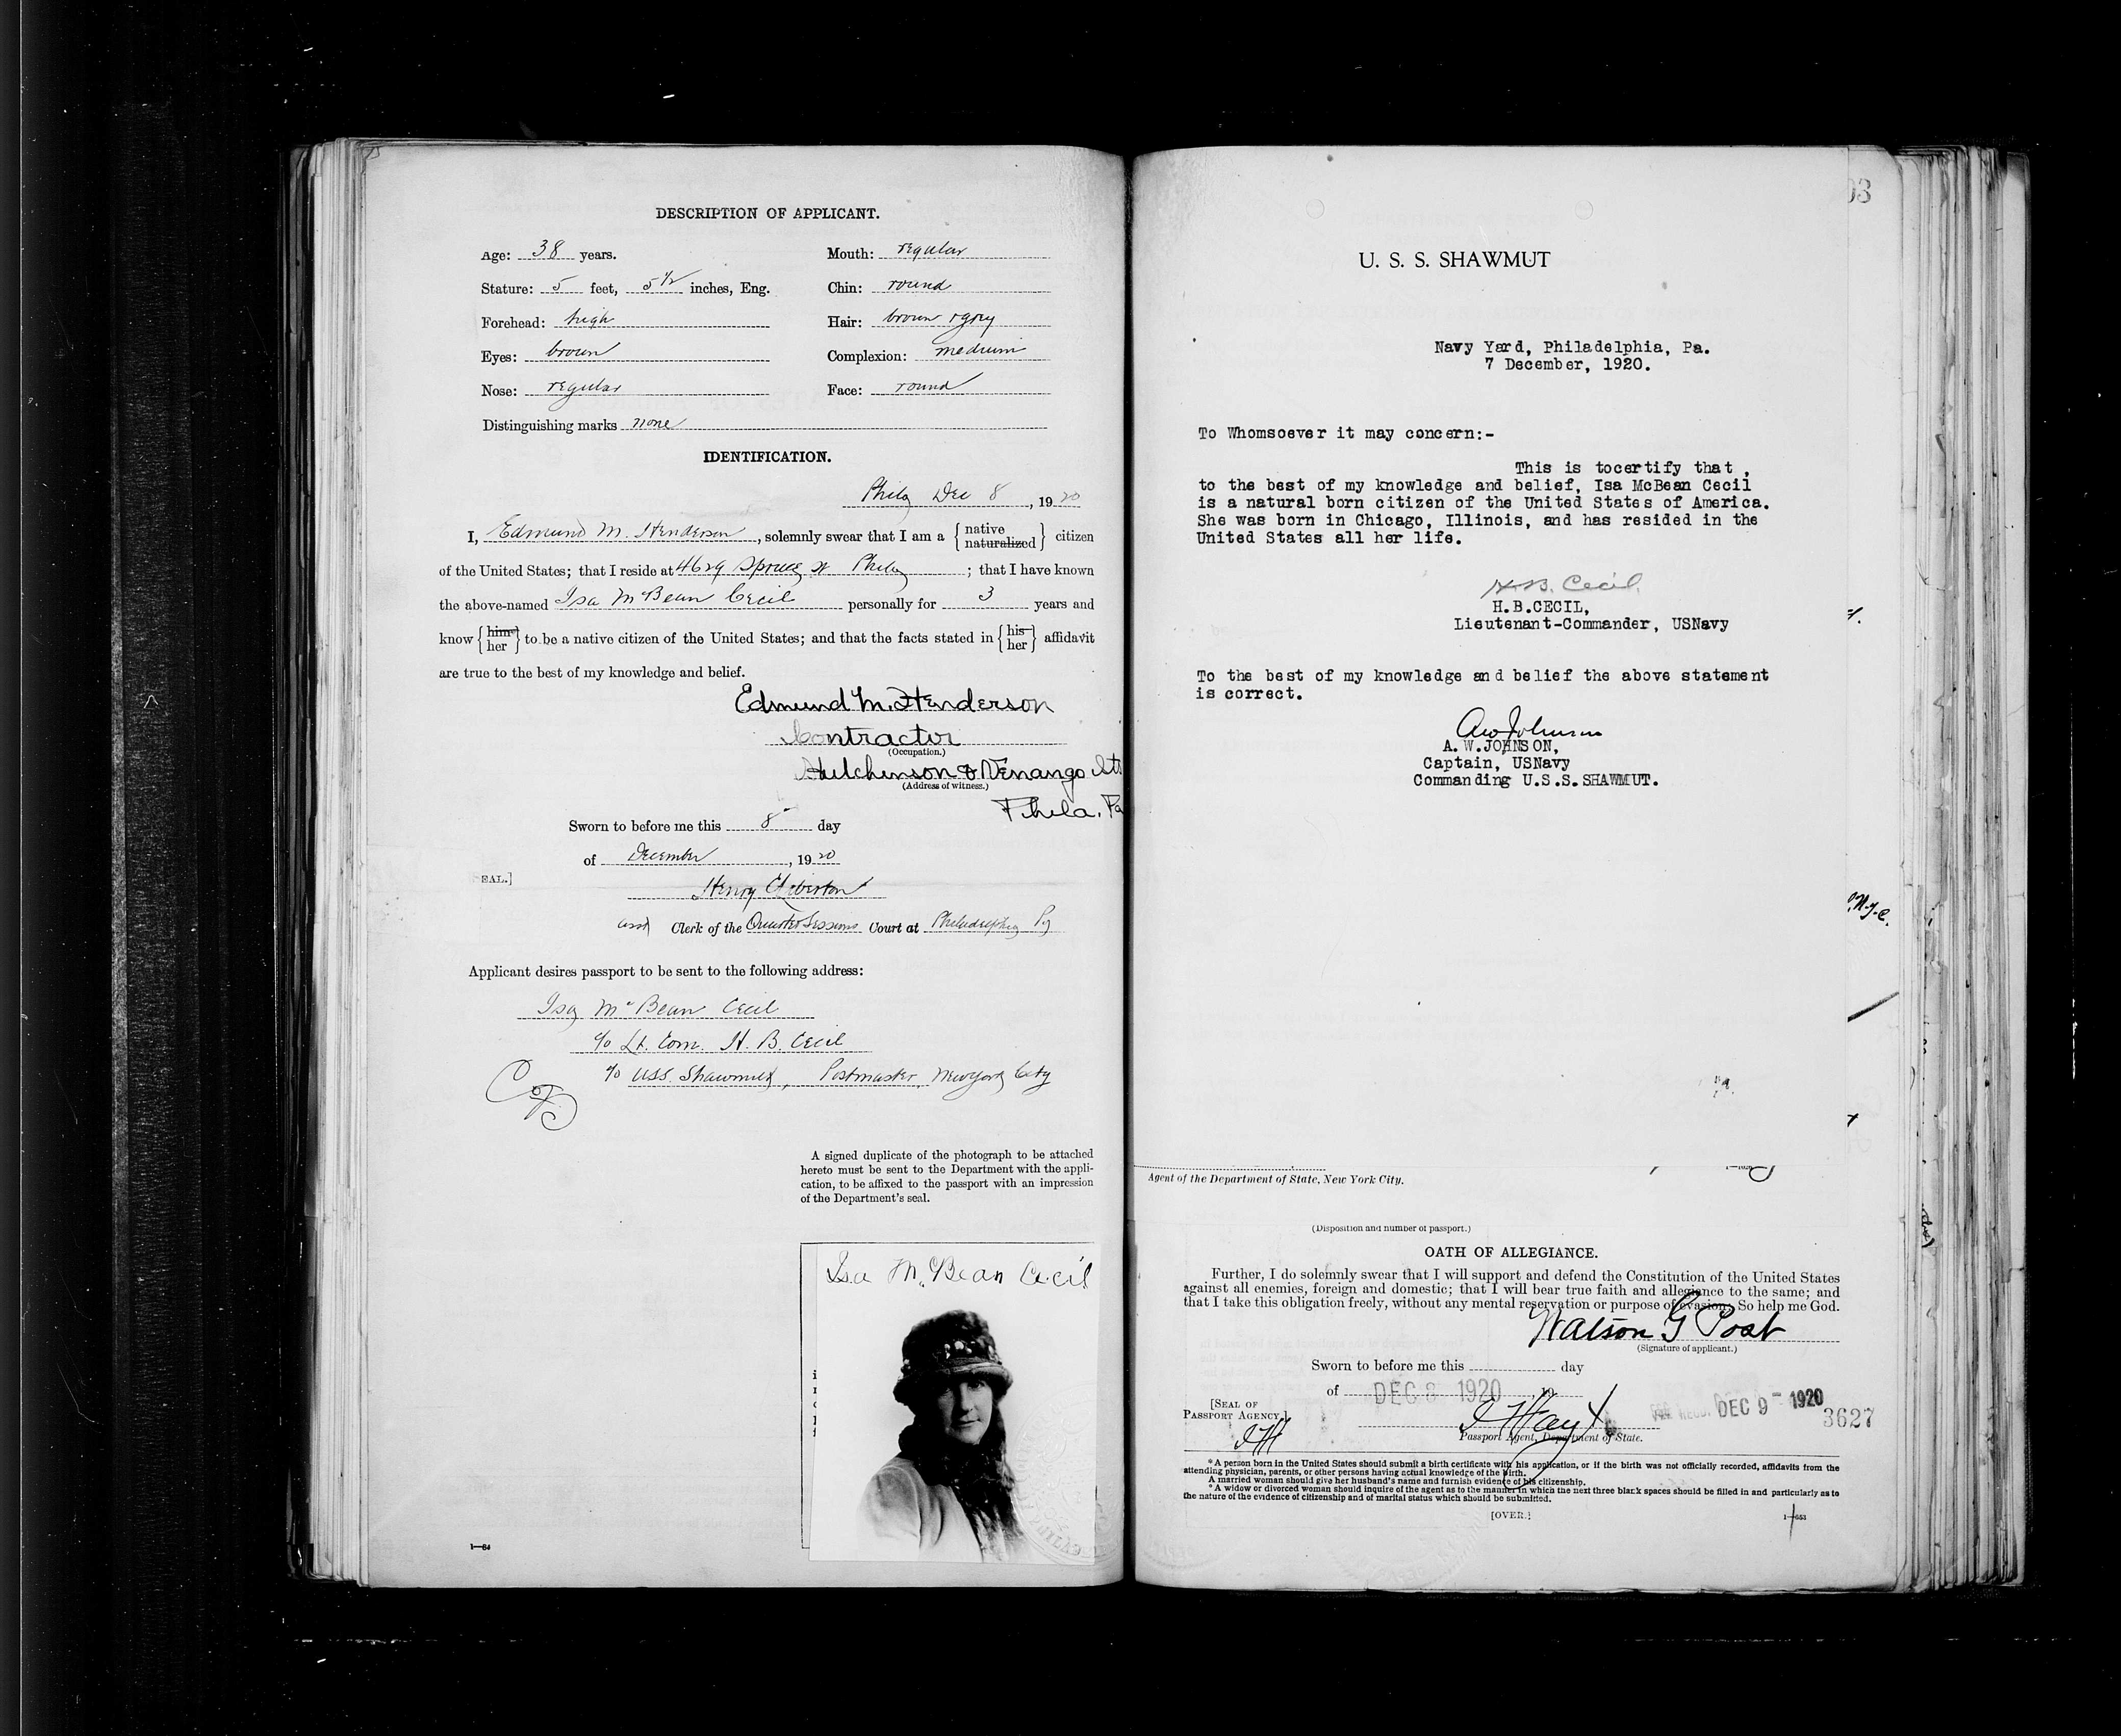 DESCRIPTION OF APPLICANT.
Age: 38 years.
Mouth: regular
Stature: 5 feet, 5 1/2 inches, Eng.
Chin: round
Forehead: high
Hair: brown & grey
Eyes: brown
Complexion: medium
Nose: regular
Face: round
Distinguishing marks none
IDENTIFICATION.
Phila Dec 8, 1920
I, Edmund M. Henderson, solemnly swear that I am a {native naturalized} citizen
of the United States; that I reside at 4629 Spruce St Phila; that I have known
the above-named Isa McBean Cecil personally for 3 years and
know {him her} to be a native citizen of the United States; and that the facts stated in {his her} affidavit
are true to the best of my knowledge and belief.
Edmund M. Henderson
Contractor
(Occupation.)
Hutchinson & Venango Sts
(Address of witness.)
Phila. Pa
Sworn to before me this 8 day
of December, 1920
EAL.]
Henry
asst Clerk of the Quarter Sessions Court at Philadelphia Pa
Applicant desires passport to be sent to the following address:
Isa McBean Cecil
c/o Lt. Com. H. B. Cecil
c/o USS. Shawmut, Postmaster, New York City
A signed duplicate of the photograph to be attached
hereto must be sent to the Department with the appli-
cation, to be affixed to the passport with an impression
of the Department's seal.
Isa McBean Cecil
1—64
U. S. S. SHAWMUT
Navy Yard, Philadelphia, Pa.
7 December, 1920.
To Whomsoever it may concern:-
This is tocertify that ,
to the best of my knowledge and belief, Isa McBean Cecil
is a natural born citizen of the United States of America.
She was born in Chicago, Illinois, and has resided in the
United States all her life.
H.B. Cecil
H.B.CECIL,
Lieutenant-Commander, USNavy
To the best of my knowledge and belief the above statement
is correct.
AW Johnson
A.W.JOHNSON,
Captain, USNavy
Commanding U.S.S.SHAWMUT.
Agent of the Department of State, New York City.
(Disposition and number of passport.)
OATH OF ALLEGIANCE.
Further, I do solemnly swear that I will support and defend the Constitution of the United States
against all enemies, foreign and domestic; that I will bear true faith and allegiance to the same; and
that I take this obligation freely, without any mental reservation or purpose of evasion: So help me God.
Watson G Post
(Signature of applicant.)
Sworn to before me this day
of DEC 8 1920, 19
[SEAL OF
PASSPORT AGENCY.]
Passport Agent, Department of State.
DEC 9 - 1920
3627
* A person born in the United States should submit a birth certificate with his application, or if the birth was not officially recorded, affidavits from the
attending physician, parents, or other persons having actual knowledge of the birth.
A married woman should give her husband's name and furnish evidence of his citizenship.
* A widow or divorced woman should inquire of the agent as to the manner in which the next three blank spaces should be filled in and particularly as to
the nature of the evidence of citizenship and of marital status which should be submitted.
[OVER.]
1—653